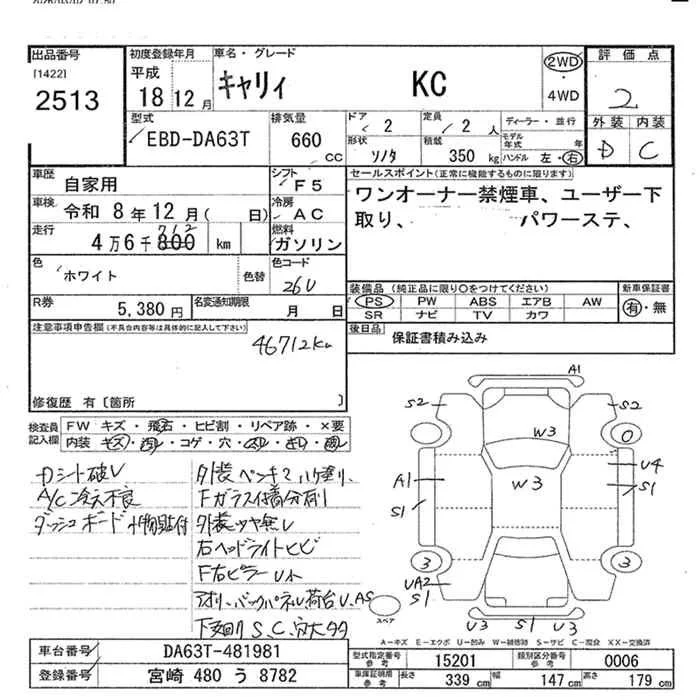 出品番号 初度登録年月 車名・グレード 評価点
[1422] 平成 キャリィ KC 2WD 2
2513 18年12月 4WD 外装 内装
型式 排気量 ドア 定員 ディーラー・並行 D C
EBD-DA63T 660 CC 2 2人 モデル年式 年
形状 積載 350kg ハンドル 左・右
車歴 自家用 シフト F5 セールスポイント(正常に機能するものに限ります)
車検 令和8年12月( 日) 冷房 AC ワンオーナー禁煙車、ユーザー下
取り、 パワーステ、
走行 4万6千800 712 km 燃料 ガソリン
色 ホワイト 色替 色コード 26U
装備品(純正品に限り○をつけてください) 新車保証書
PS PW ABS エアB AW 有・無
SR ナビ TV カワ
R券 5,380円 名変通知期限 月 日
後日品 保証書積み込み
注意事項申告欄(不具合内容等は具体的に記入して下さい)
46712km
修復歴 有〔箇所 〕
検査員記入欄 FW キズ・飛石・ヒビ割・リペア跡・×要
内装 キズ・汚れ・コゲ・穴・
シート破レ
A/C冷え不良
ダッシュボード 小物貼付
外装ペンキ ハケ塗り、
Fガラス付着分有リ
外装ツヤ無し
右ヘッドライトヒビ
F右ピラー U小
アオリ、バックパネル荷台U、AS
下廻りS、C、穴大
A1
S2 S2
W3 0
U4
A1 W3 S1
S1
3 3
UA2
S1 スペア
U3 S1 U3
A=キズ E=エクボ U=凹み W=補修跡 S=サビ C=腐食 XX=交換済
車台番号 DA63T-481981 型式指定番号 参考 15201 類別区分番号 参考 0006
登録番号 宮崎 480 う 8782 車庫証明用 参考 長さ 339cm 幅 147cm 高さ 179cm